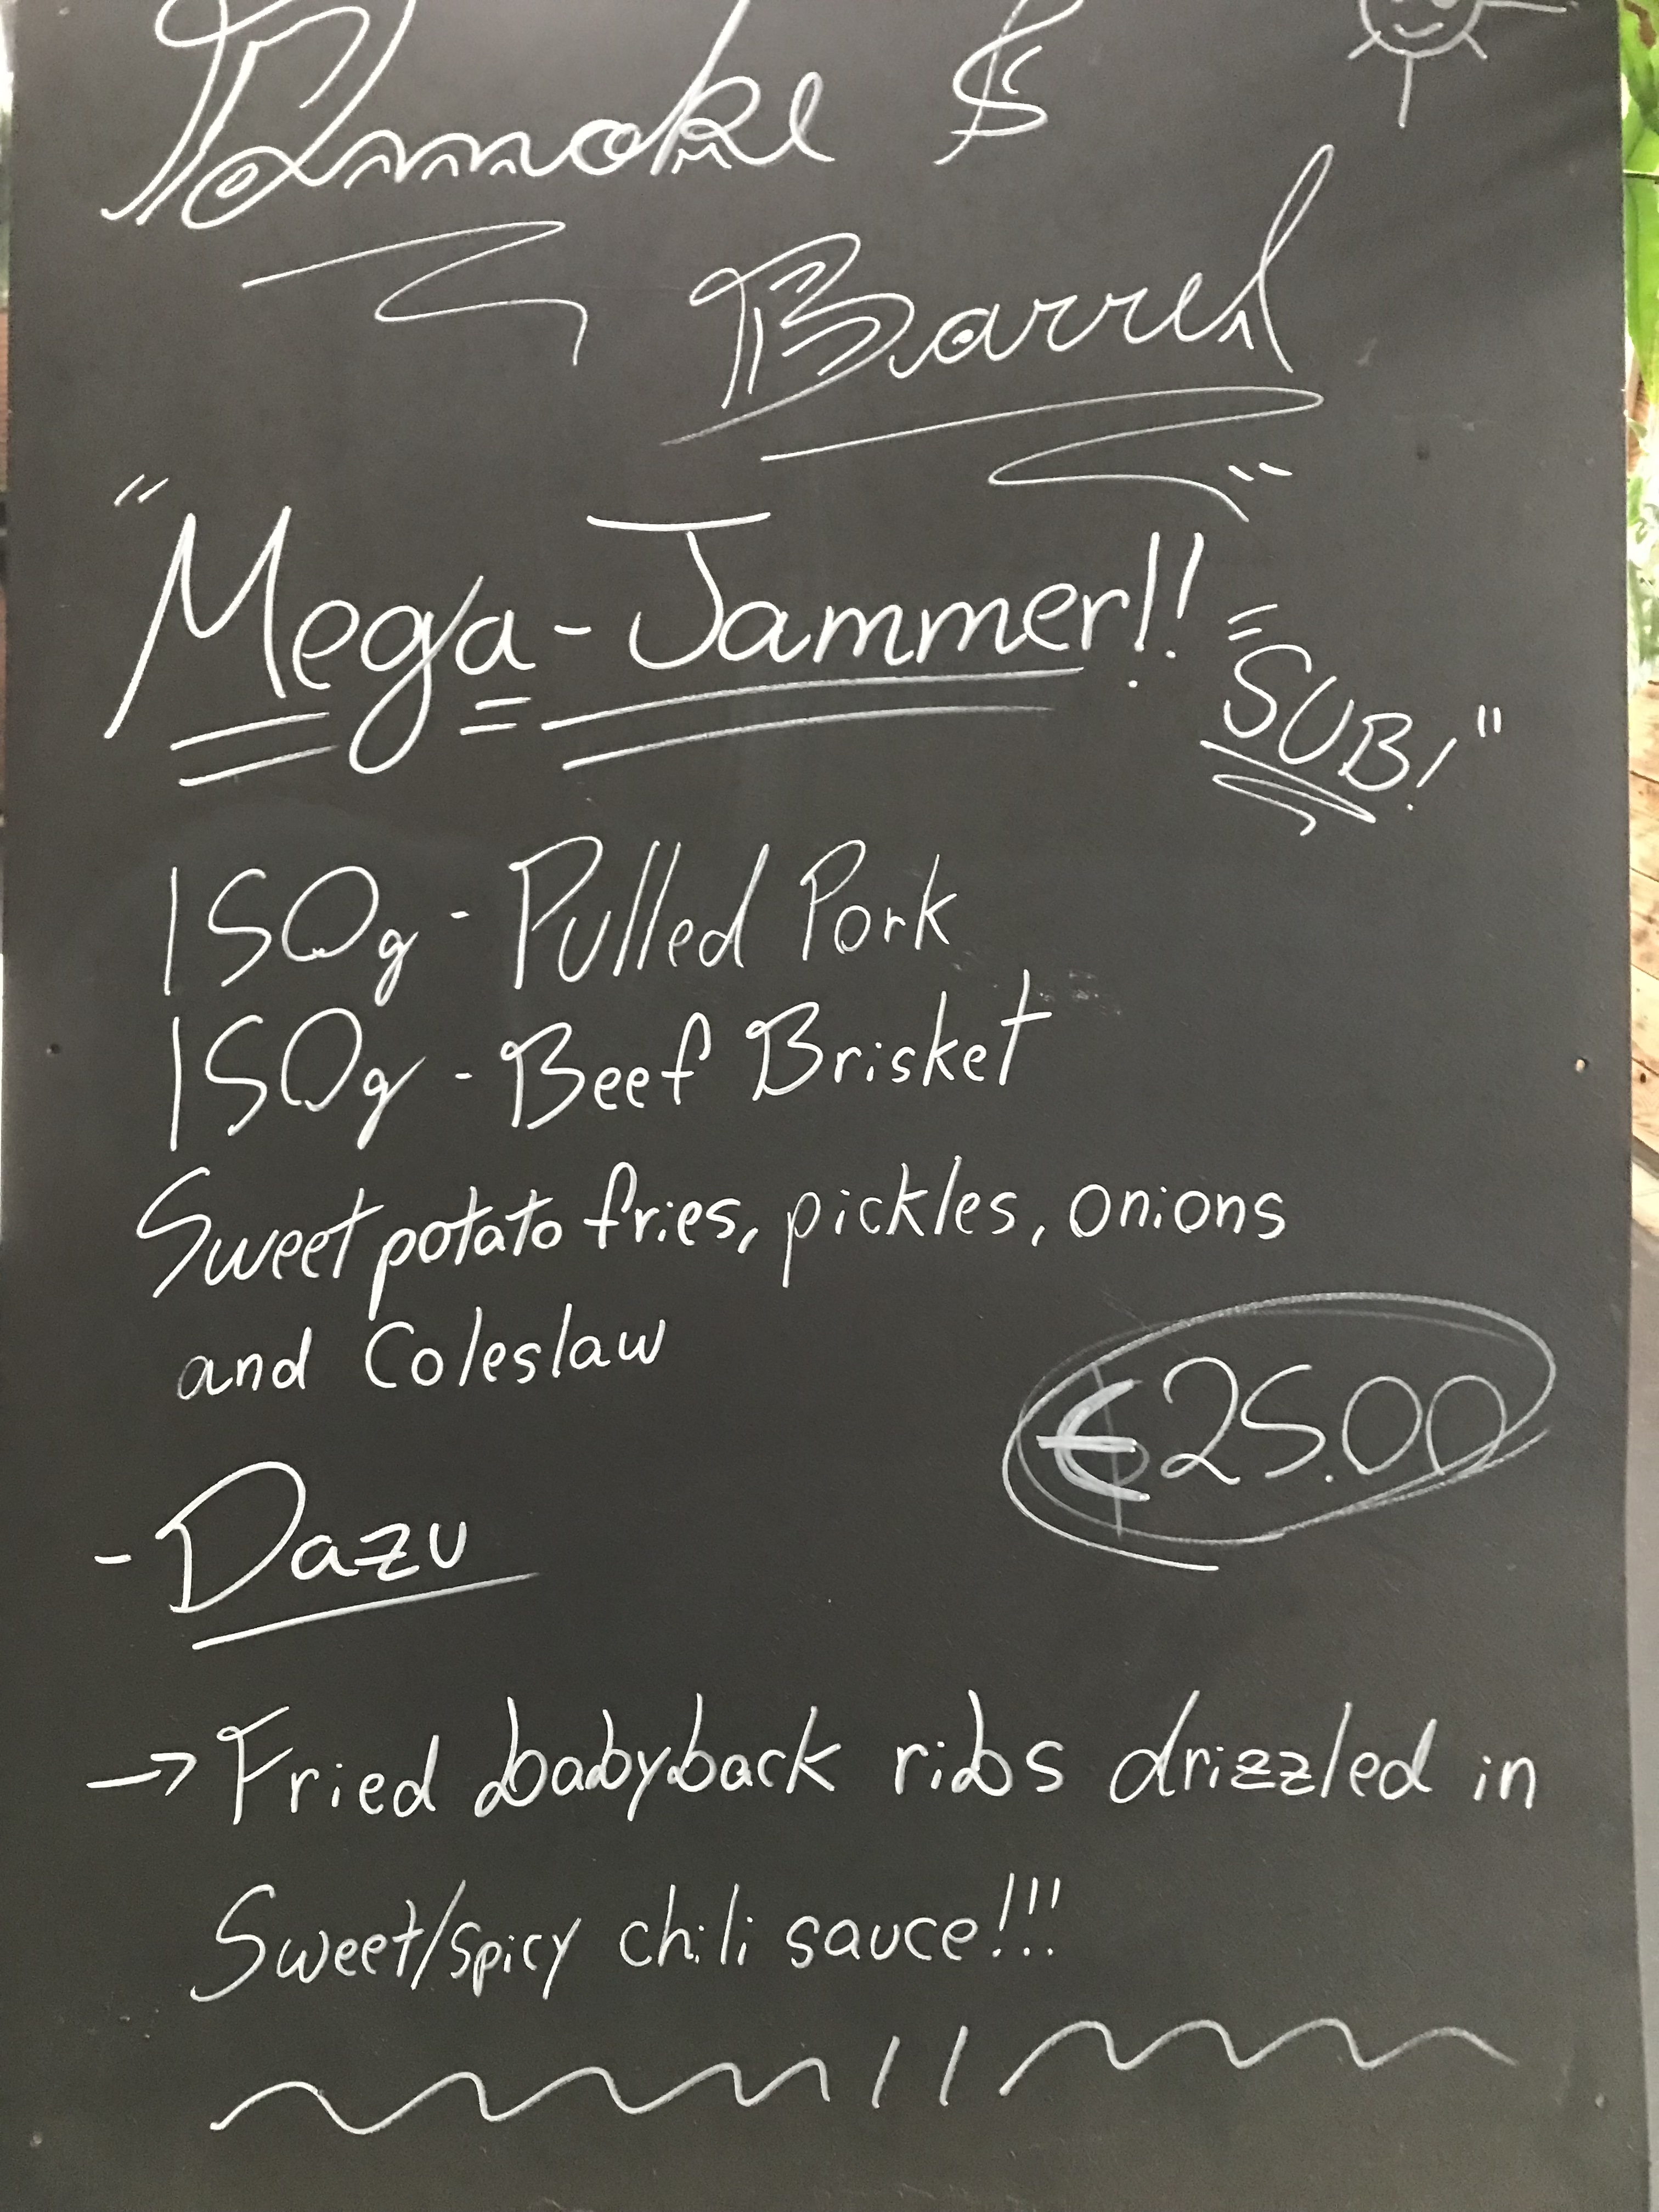 Smoke &
Barrel
"Mega-Jammer!! =
SUB!"
150g - Pulled Pork
150g - Beef Brisket
Sweet potato fries, pickles, onions
and Coleslaw
€25.00
- Dazu
→ Fried babyback ribs drizzled in
Sweet/spicy chili sauce!!!